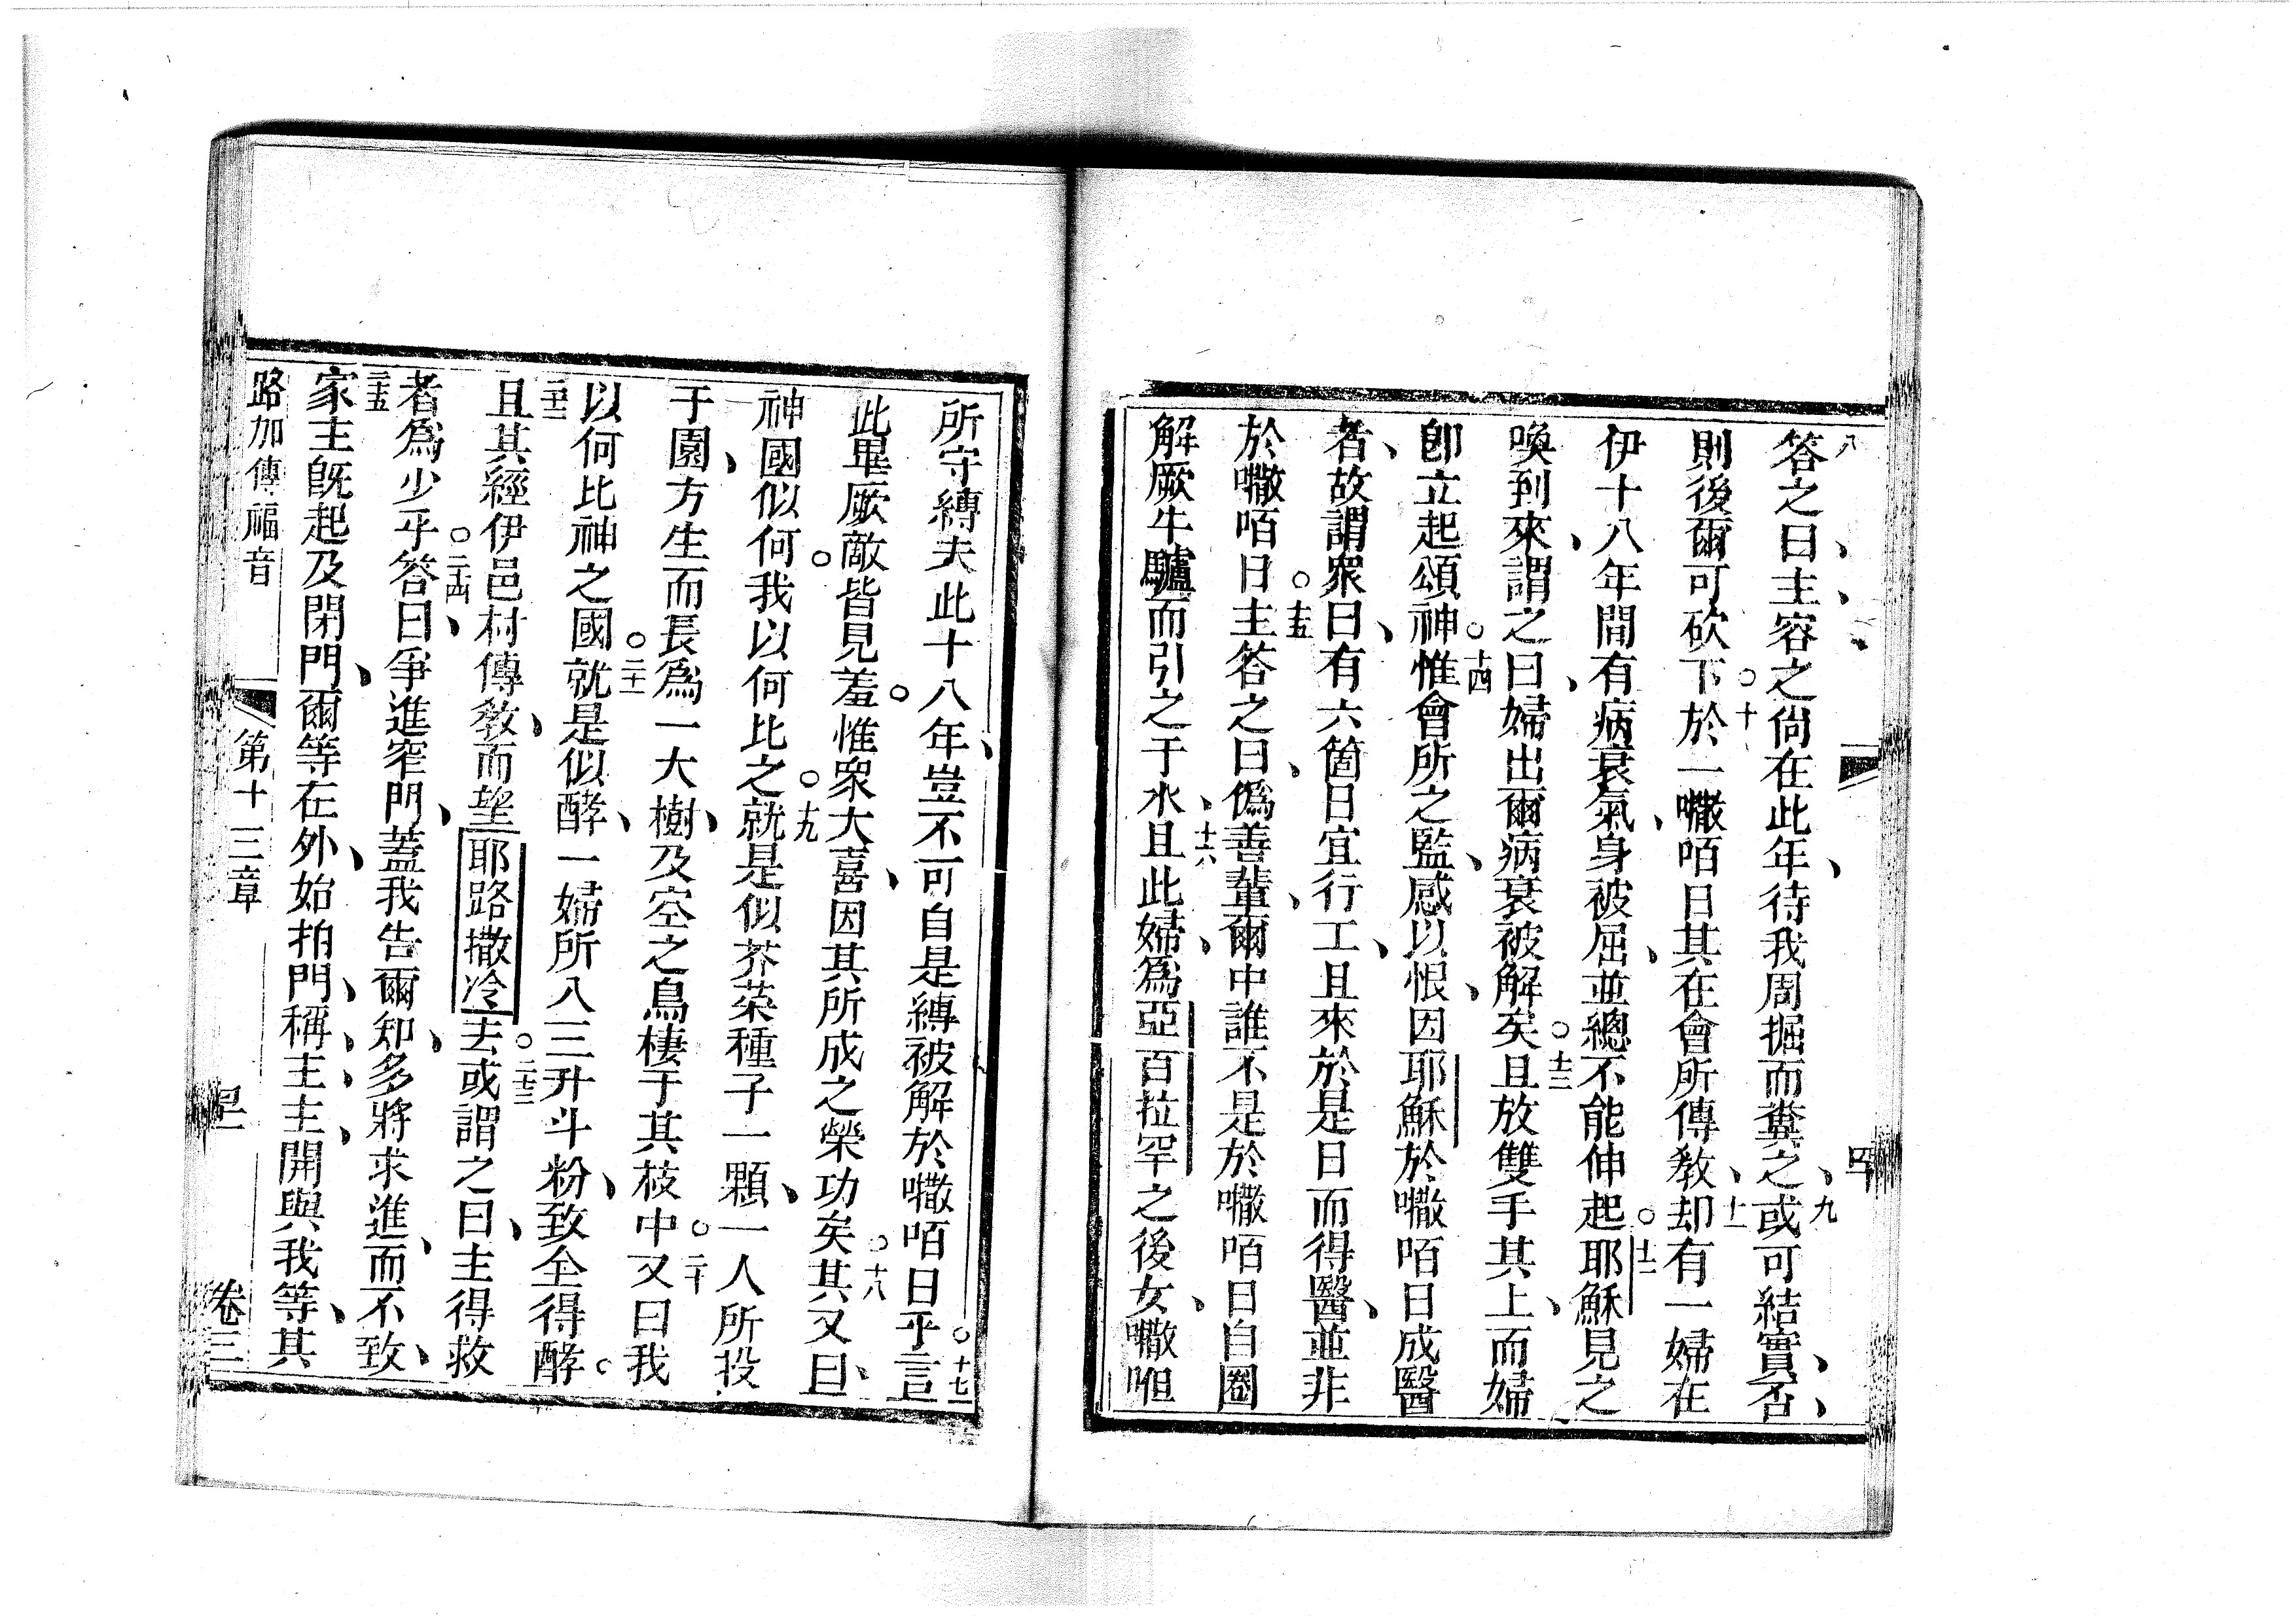 八答之曰、主、容之尙在此年、待我周掘而糞之、九或可結實、否、
則後爾可砍下。十於一𡃤咟日其在會所傳敎、十一却有一婦在
伊十八年間有病衰氣、身被屈、並總不能伸起。十二耶穌見之
喚到來、謂之曰、婦出爾病衰被解矣。十三且放雙手其上、而婦
卽立起頌神。十四惟會所之監、感以恨、因耶穌於𡃤咟日成醫
者、故謂衆曰、有六箇日宜行工、且來於是日而得醫、並非
於𡃤咟日。十五主答之曰、僞善輩、爾中誰不是於𡃤咟日自圈
解厥牛驢而引之于水、十六且此婦、爲亞百拉罕之後女、𡃤呾
所守縛夫此十八年、豈不可自是縛被解於𡃤咟日乎。十七言
此畢厥敵皆見羞。惟衆大喜、因其所成之榮功矣。十八其又曰、
神國似何。我以何比之。十九就是似芥菜種子一顆、一人所投
于園、方生而長爲一大樹、及空之鳥棲于其枝中。二十又曰我
以何比神之國。二十一就是似酵、一婦所入三升斗粉、致全得酵。
二十二且其經伊邑村傳敎、而望耶路撒冷去。二十三或謂之曰、主得救
者爲少乎。二十四答曰、爭進窄門、蓋我告爾知、多將求進、而不致、
二十五家主旣起及閉門、爾等在外、始拍門、稱、主、主、開與我等、其
路加傳福音 第十三章 卷三